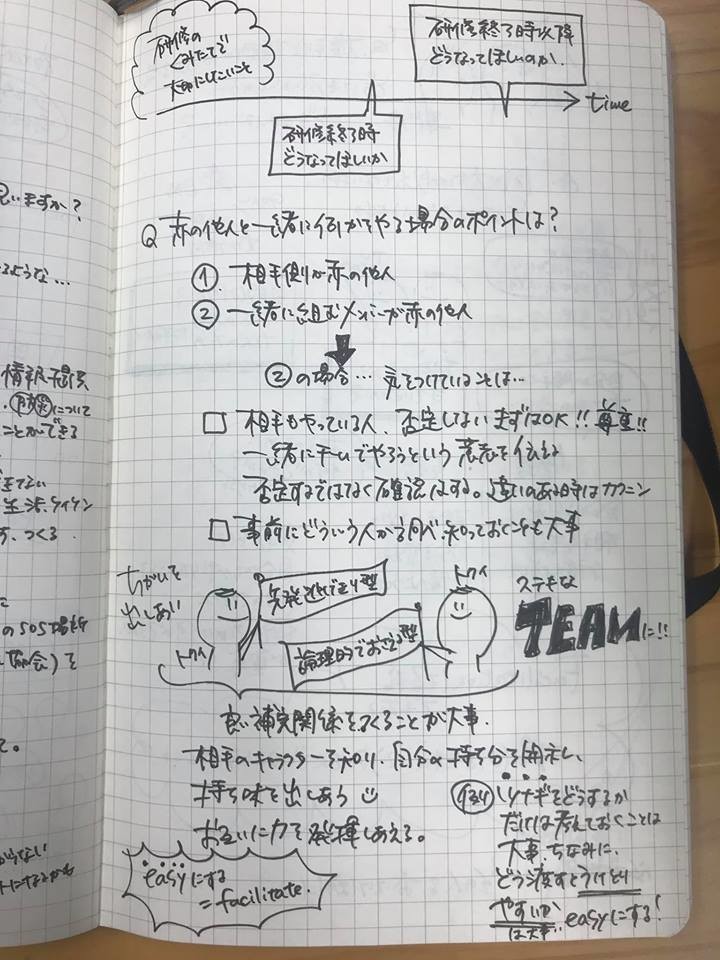 研修の
くみたてで
大切にしたいこと
研修終了時以降
どうなってほしいのか.
time
研修終了時
どうなってほしいか
Q 赤の他人と一緒に何かをやる場合のポイントは?
① 相手側が赤の他人
② 一緒に組むメンバーが赤の他人
②の場合… 気をつけていることは…
□ 相手もやっている人、否定しない まずはOK!! 尊重!!
一緒にチームでやろうという意志を伝える
否定するではなく確認はする。違いのある時はカクニン
□ 事前にどういう人か調べ、知っておくことも大事
ちがいを
出しあい
トクイ
先発
型
トクイ
論理的でおさえる型
ステキな
TEAMに!!
良い補完関係をつくることが大事.
相手のキャラクターを知り、自分の持ち分を開示し、
持ち味を出しあう
お互いに力を発揮しあえる。
easyにする
=facilitate.
ツナギをどうするか
だけは考えておくことは
大事、ちなみに、
どう渡すとうけとり
やすいか
は大事. easyにする!
いますか?
るような…
情報提供
について
ことができる
生活
す、つくる
のSOS
協会)を
て。